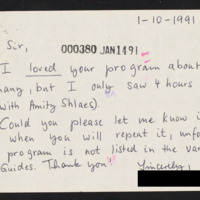 1-10-1991
Sir,
000380 JAN1491
I loved your program about
many, but I only saw 4 hours
with Amity Shlaes).
Could you please let me know i
when you will repeat it, unfo
program is not listed in the var
Guides. Thank you
Yincerely,